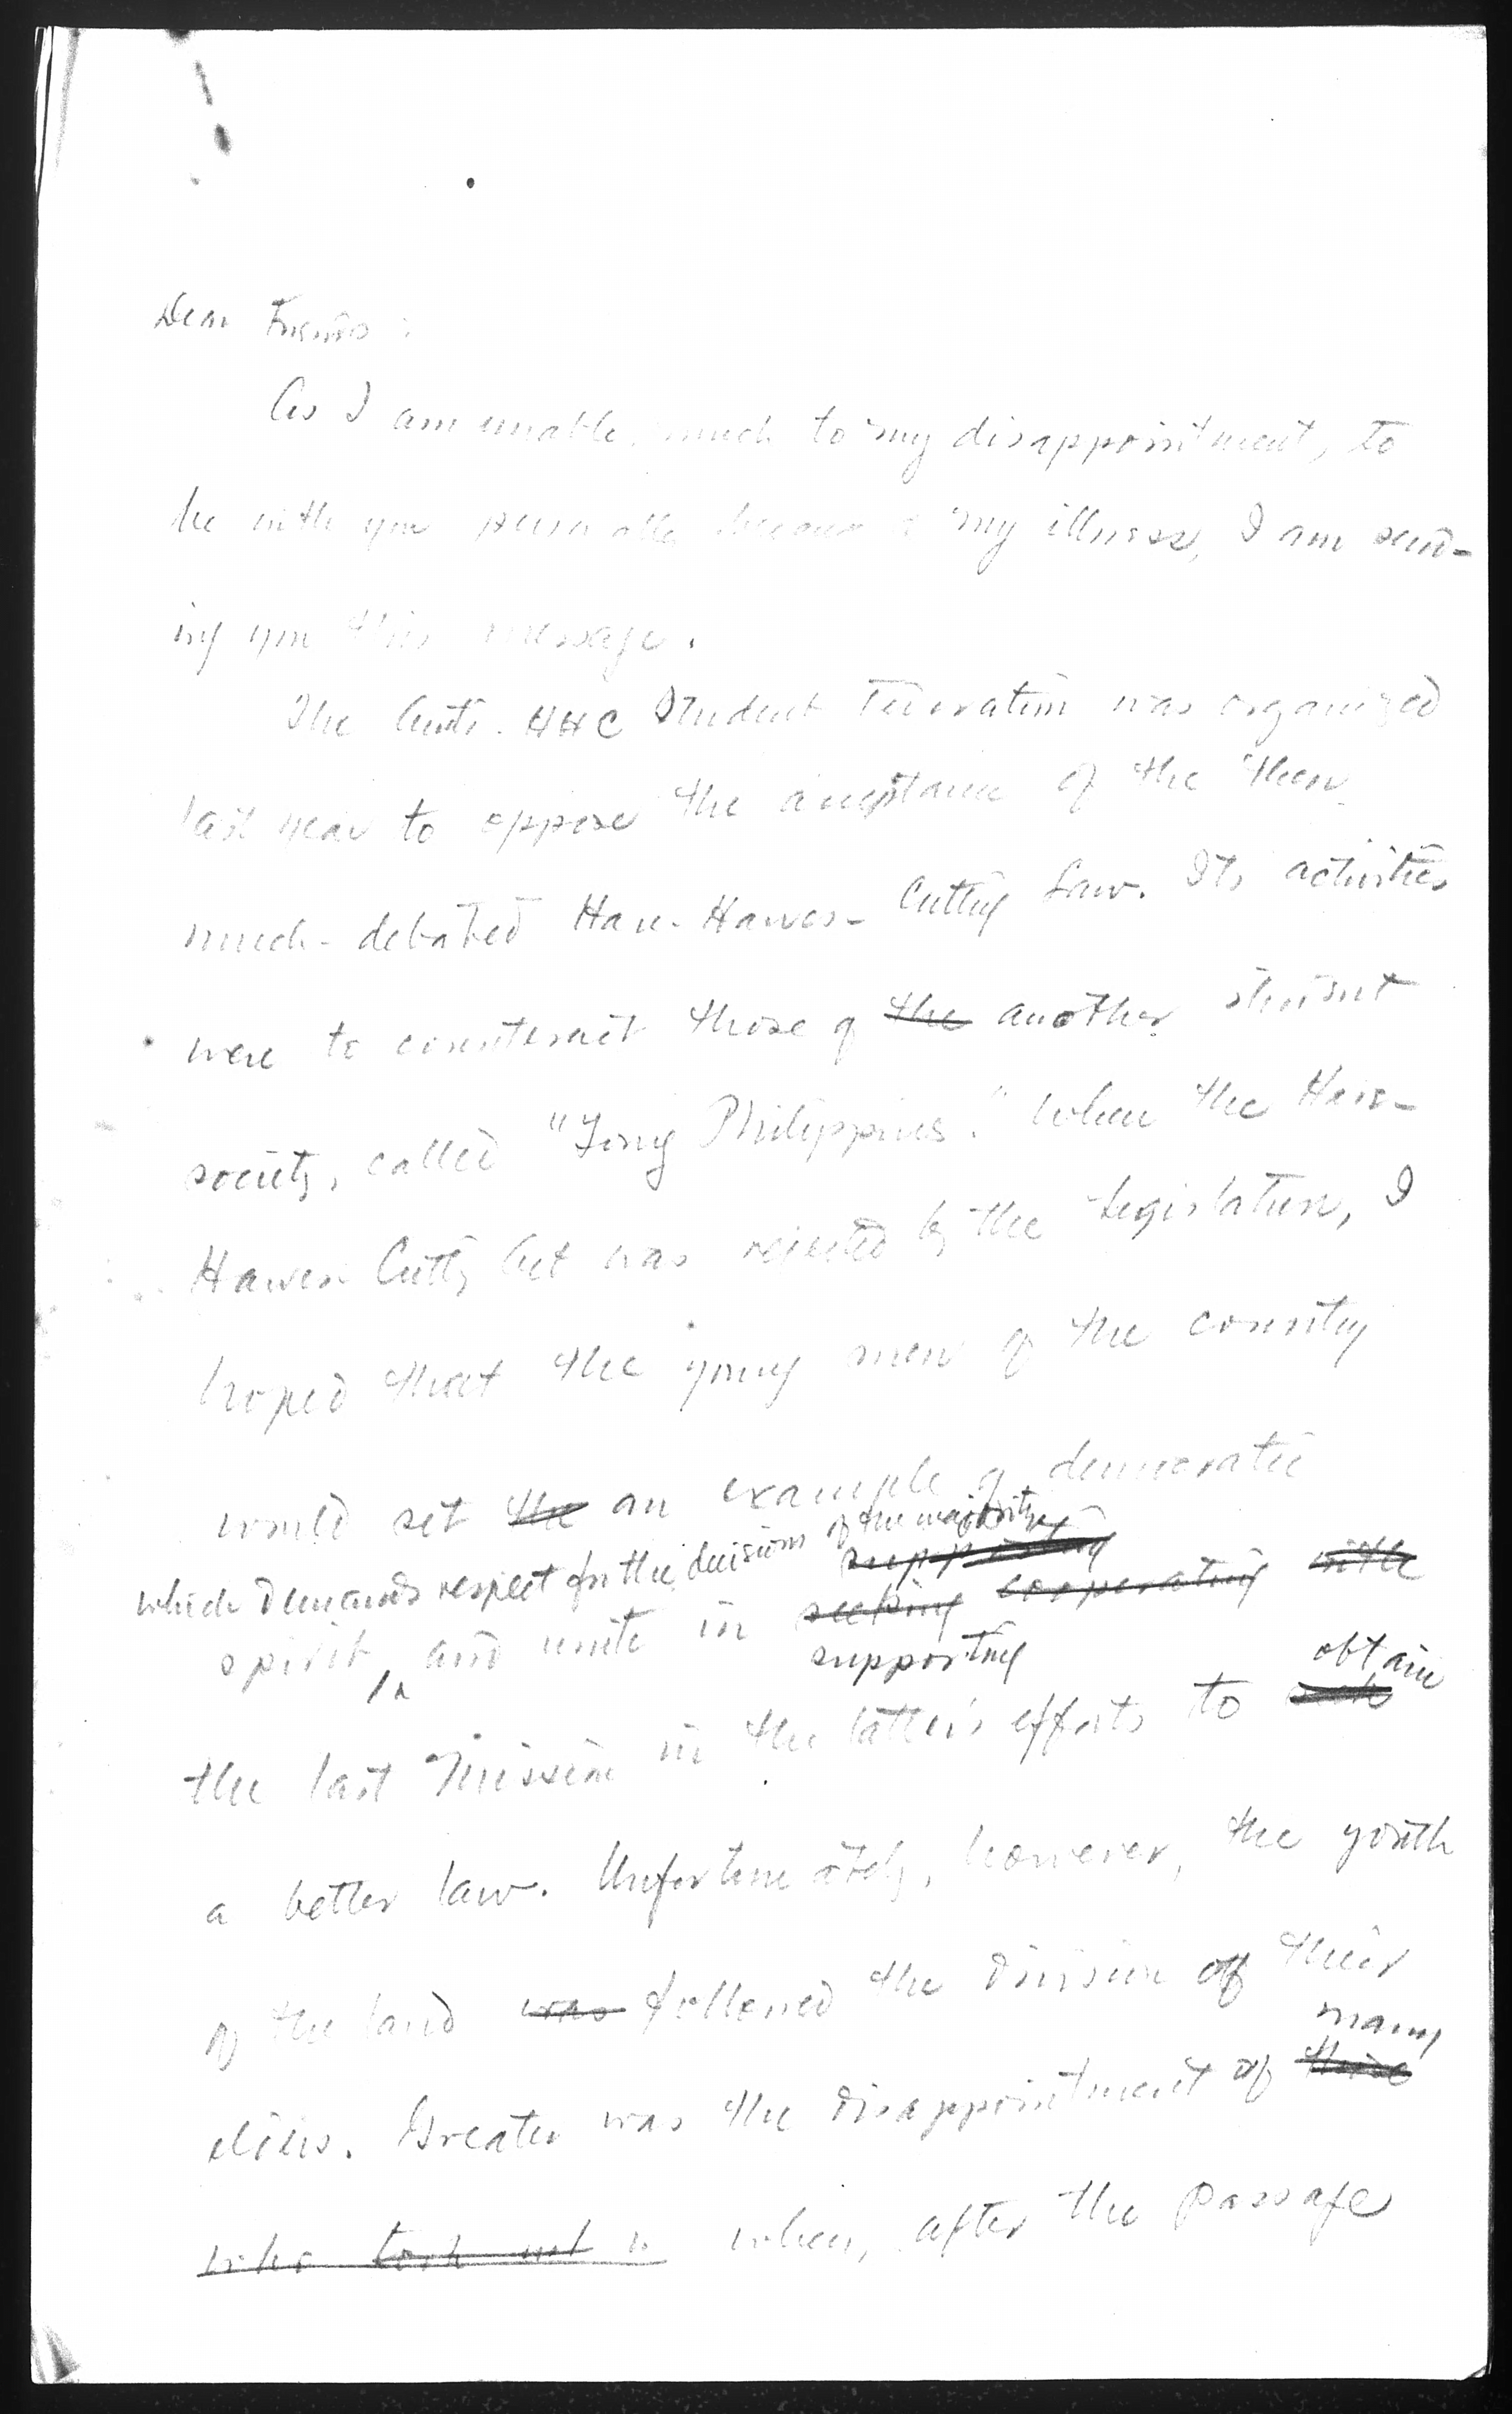 Dear Friends:
As I am unable, much to my disappointment, to
be with you personally because of my illness, I am send-
ing you this message.
The Anti-HHC Student Federation was organized
last year to oppose the acceptance of the then
much-debated Hare-Hawes-Cutting Law. Its activities
were to counteract those of the another student
society, called "Young Philippines." When the Hare-
Hawes-Cutting Act was rejected by the Legislature, I
hoped that the young men of the country
would set the an example of democratic
which demands respect for the decisions of the majority supporting
spirit, and unite in seeking cooperating with
supporting obtain
the last Mission in the latter's efforts to seek
a better law. Unfortunately, however, the youth
of the land was followed the division of their
many
elders. Greater was the disappointment of those
who took not when, after the passage